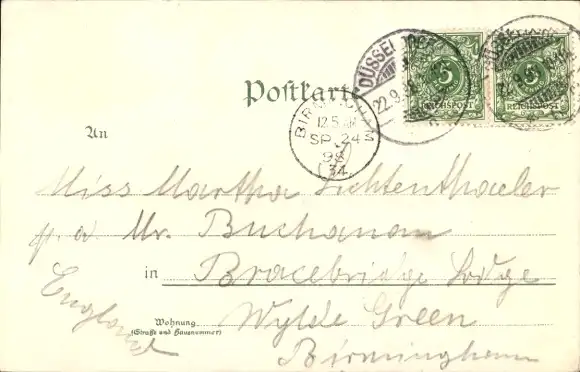 Postkarte
DÜSSELDORF
22.9.98
5
REICHSPOST
5
REICHSPOST
BIRM
12 5 AM
SP 24
98
34
An
Miss Martha Lichtenthaeler
p. a. Mr. Buchanan
in Bracebridge Lodge
England
Wohnung
(Straße und Hausnummer)
Wylde Green
Birmingham